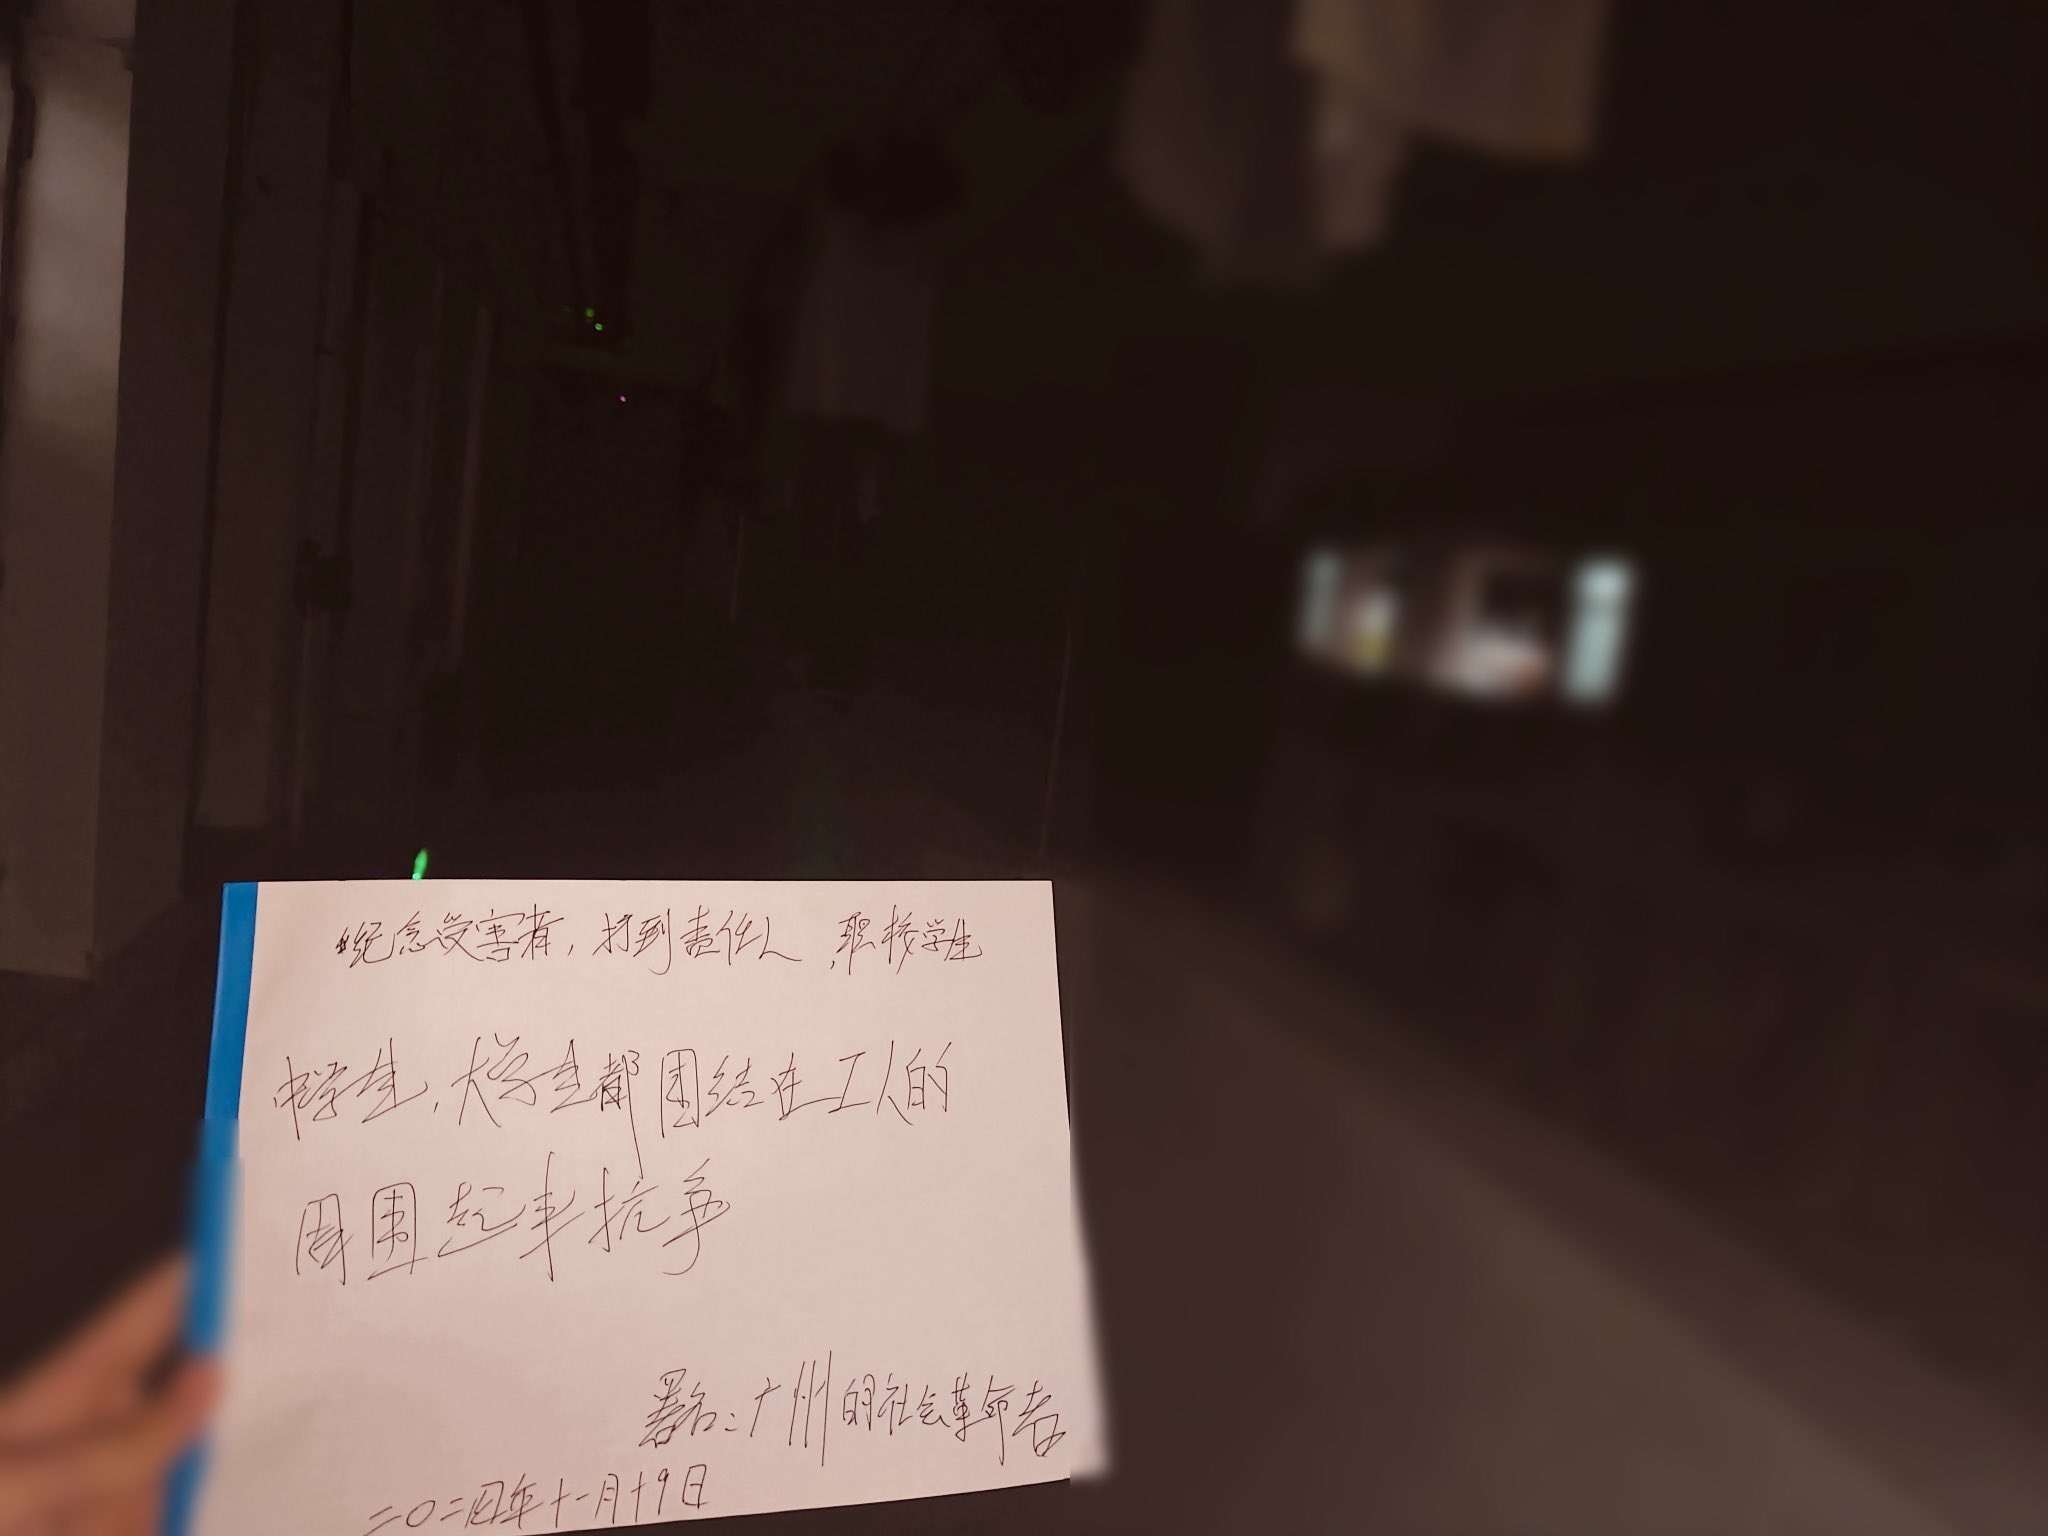 纪念受害者，打到责任人，职校学生
中学生，大学生都团结在工人的
周围起来抗争
署名：广州的社会革命者
二〇二四年十一月十9日